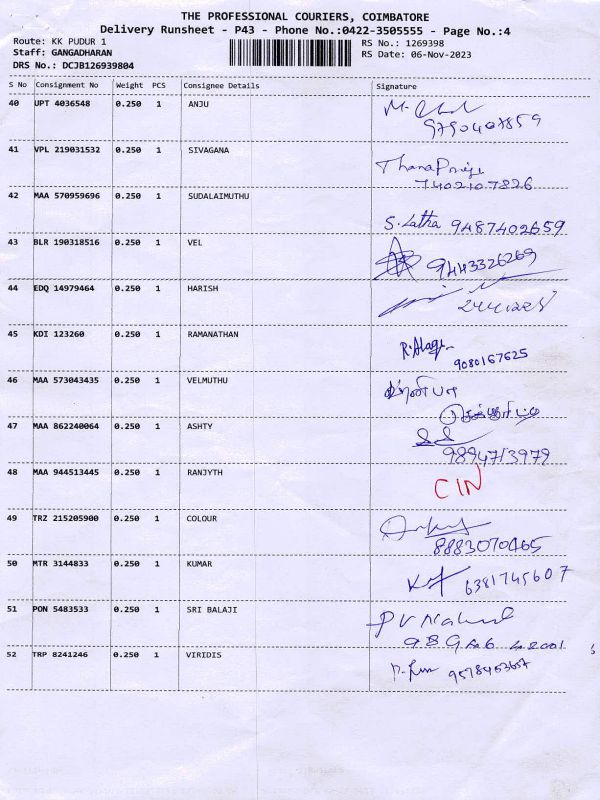 THE PROFESSIONAL COURIERS, COIMBATORE
Delivery Runsheet - P43 - Phone No.:0422-3505555 - Page No.:4
Route: KK PUDUR 1
Staff: GANGADHARAN
DRS No.: DCJB126939804
RS No.: 1269398
RS Date: 06-Nov-2023
S No Consignment No Weight PCS Consignee Details Signature
40 UPT 4036548 0.250 1 ANJU
41 VPL 219031532 0.250 1 SIVAGANA
7402107826
42 MAA 570959696 0.250 1 SUDALAIMUTHU
S. Latha 9487402659
43 BLR 190318516 0.250 1 VEL
9443326269
44 EDQ 14979464 0.250 1 HARISH
45 KDI 123260 0.250 1 RAMANATHAN
9080167625
46 MAA 573043435 0.250 1 VELMUTHU
47 MAA 862240064 0.250 1 ASHTY
9894713979
48 MAA 944513445 0.250 1 RANJYTH
CIN
49 TRZ 215205900 0.250 1 COLOUR
8883070465
50 MTR 3144833 0.250 1 KUMAR
6381745607
51 PON 5483533 0.250 1 SRI BALAJI
52 TRP 8241246 0.250 1 VIRIDIS